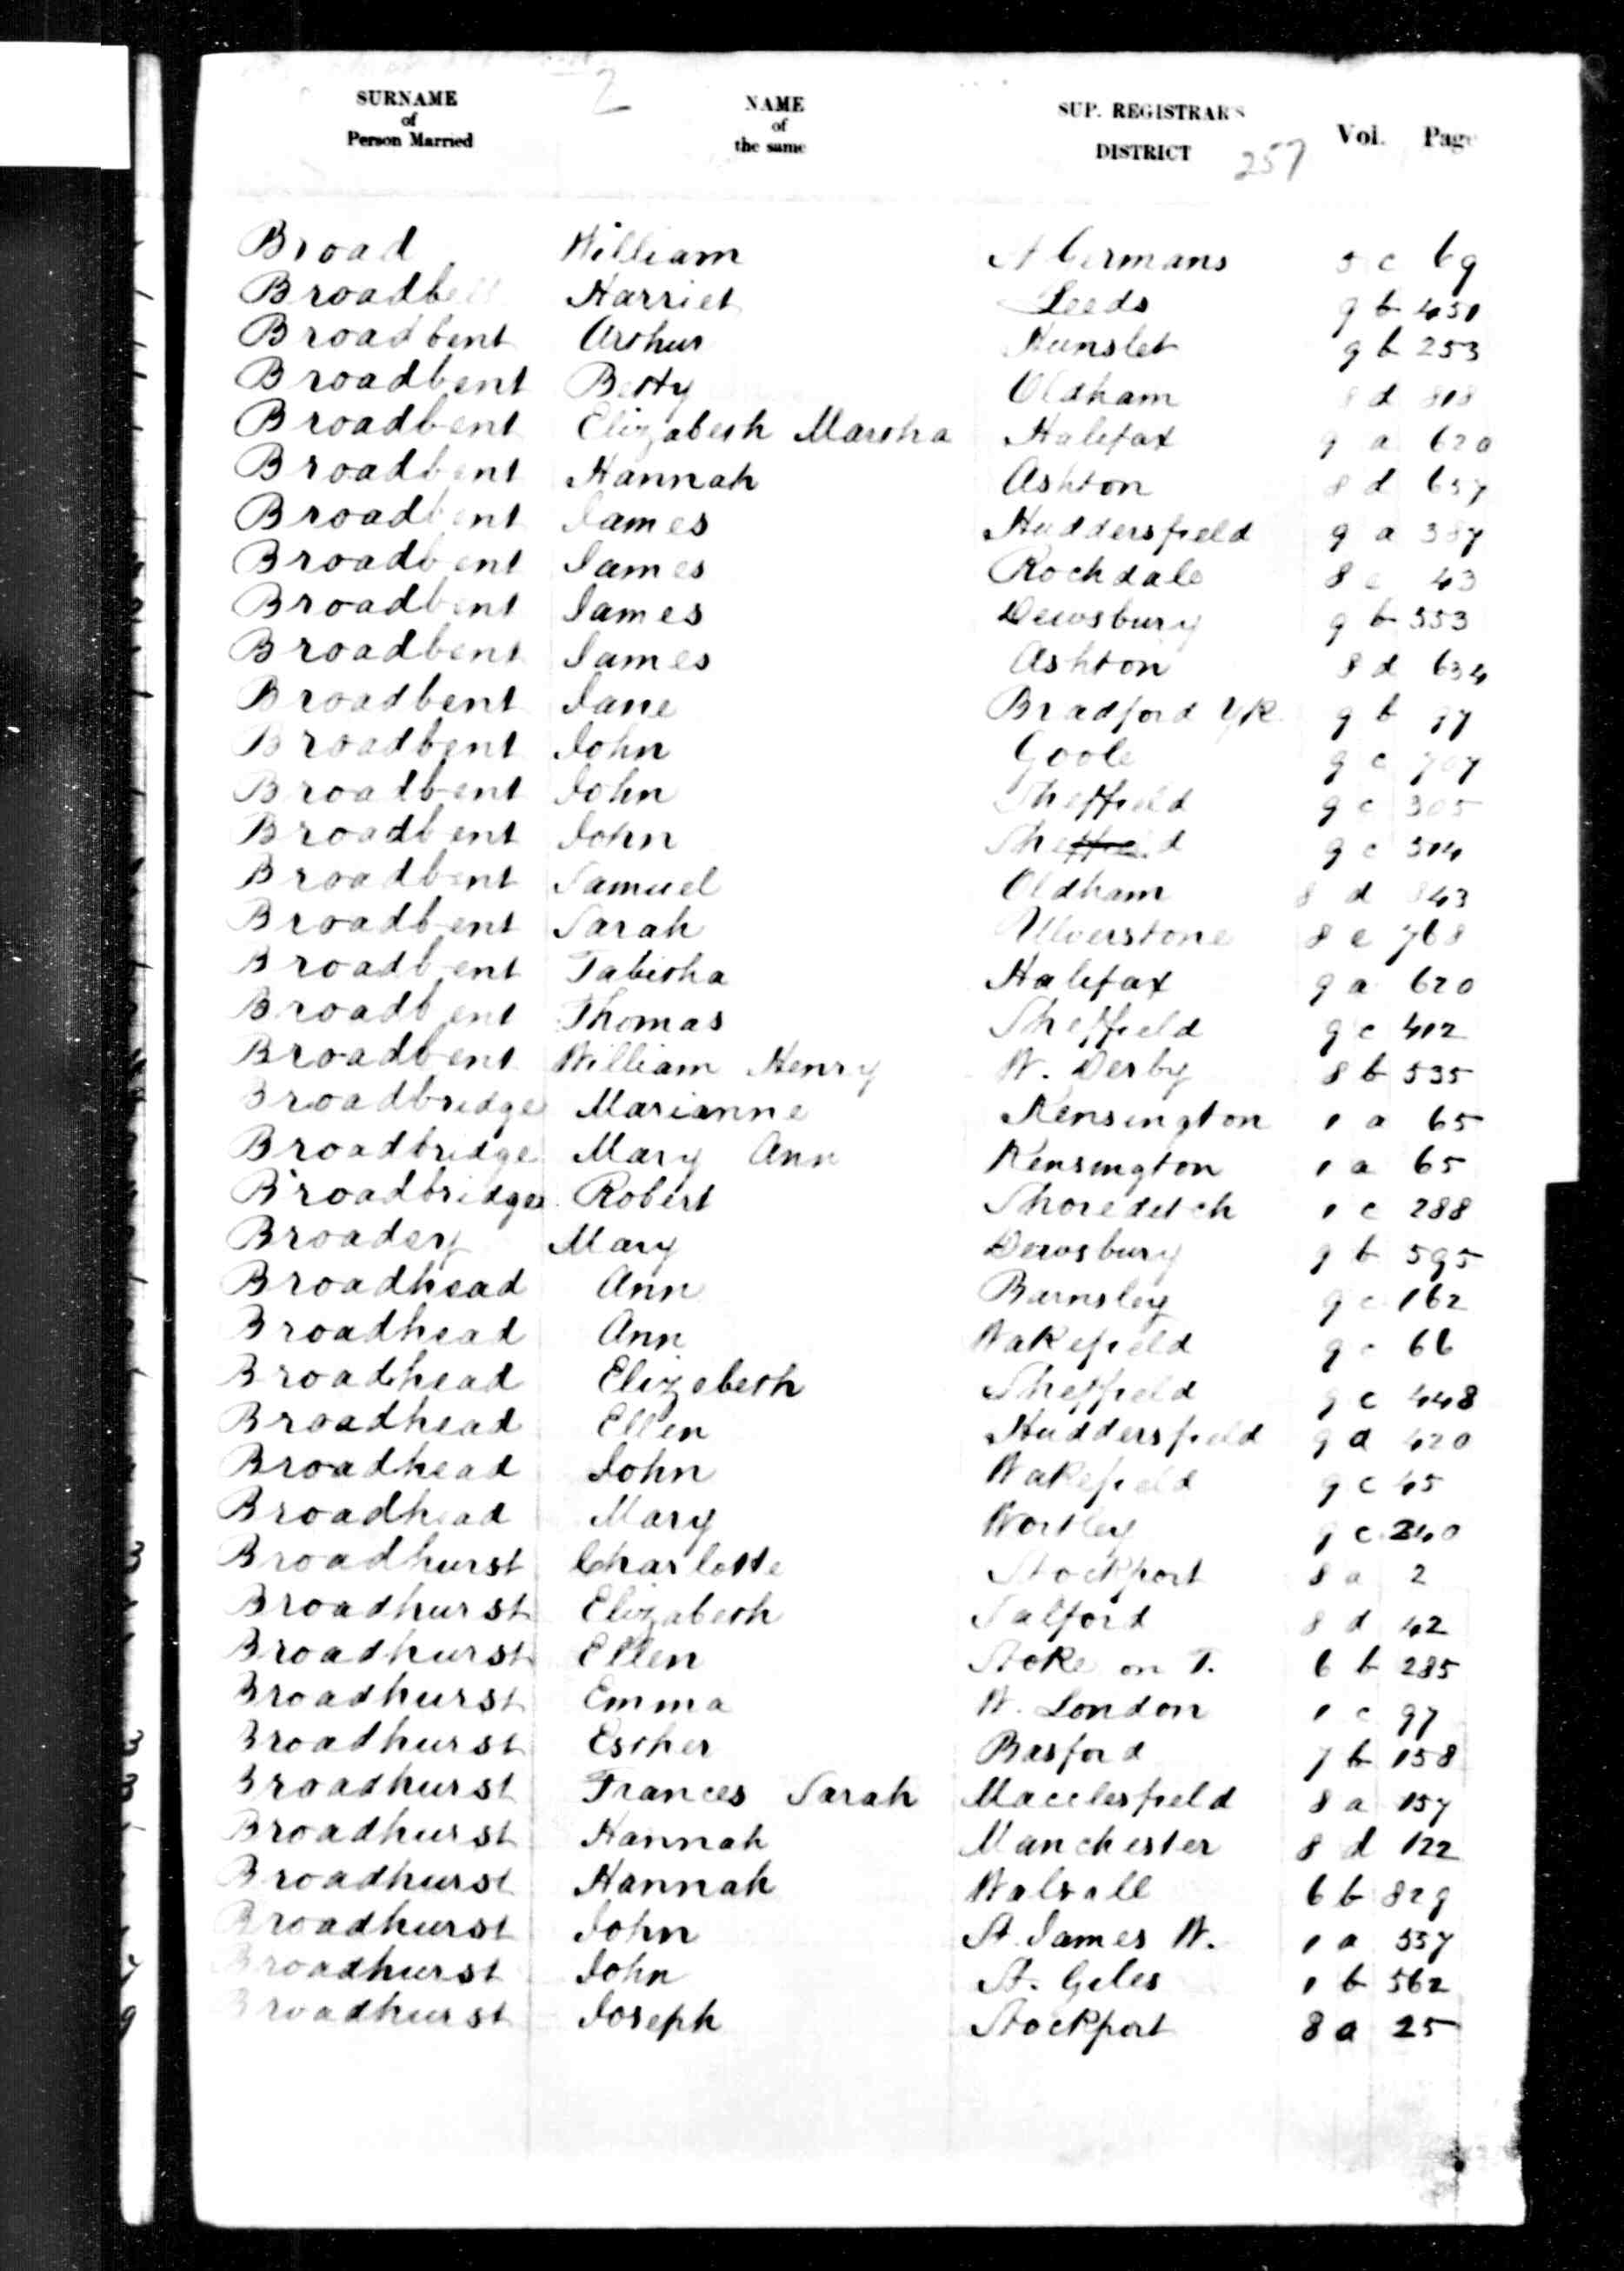 2
SURNAME of Person Married NAME of the same SUP. REGISTRAR'S DISTRICT Vol. Page
257
Broad William St Germans 5 c 69
Harriet Leeds 9 b 451
Broadbent Arthur Hunslet 9 b 253
Broadbent Betty Oldham 8 d 818
Broadbent Elizabeth Martha Halifax 9 a 620
Broadbent Hannah Ashton 8 d 657
Broadbent James Huddersfield 9 a 387
Broadbent James Rochdale 8 e 43
Broadbent James Dewsbury 9 b 553
Broadbent James Ashton 8 d 634
Broadbent Jane Bradford YK 9 b
Broadbent John Goole 9 c 707
Broadbent John Sheffield 9 c 305
Broadbent John Sheffield 9 c 314
Broadbent Samuel Oldham 8 d 843
Broadbent Sarah Ulverstone 8 e 768
Broadbent Tabitha Halifax 9 a 620
Broadbent Thomas Sheffield 9 c 412
Broadbent William Henry W. Derby 8 b 535
Broadbridge Marianne Kensington 1 a 65
Broadbridge Mary Ann Kensington 1 a 65
Broadbridge Robert Shoreditch 1 c 288
Broadey Mary Dewsbury 9 b 595
Broadhead Ann Barnsley 9 c 162
Broadhead Ann Wakefield 9 c 66
Broadhead Elizabeth Sheffield 9 c 448
Broadhead Ellen Huddersfield 9 a 420
Broadhead John Wakefield 9 c 45
Broadhead Mary Wortley 9 c 240
Broadhurst Charlotte Stockport 8 a 2
Broadhurst Elizabeth Salford 8 d 42
Broadhurst Ellen Stoke on T. 6 b 285
Broadhurst Emma W. London 1 c 97
Broadhurst Esther Basford 7 b 158
Broadhurst Frances Sarah Macclesfield 8 a 157
Broadhurst Hannah Manchester 8 d 122
Broadhurst Hannah Walsall 6 b 829
Broadhurst John St. James W. 1 a 557
Broadhurst John St. Giles 1 b 562
Broadhurst Joseph Stockport 8 a 25